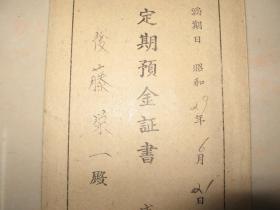 満期日 昭和29年6月21
定期預金証書
後藤栄一殿